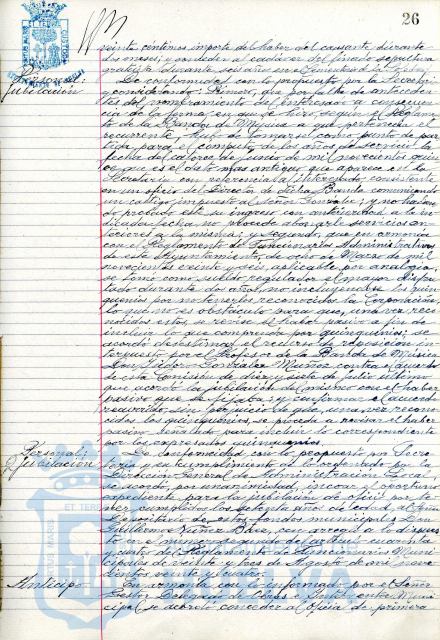 26
veinte céntimos importe del haber del causante durante
dos meses; y conceder al cadáver del finado sepultura
gratuita durante seis años en el Cementerio de la
Personal:
Jubilación
De conformidad con lo propuesto por la Secretaría
y considerando: Primero, que por falta de anteceden-
tes del nombramiento del interesado a consecuen-
cia de la forma en que se hizo, según el Reglamen-
to de la Banda de Música a que pertenecía el
recurrente, hubo de tomarse como punto de par-
tida para el cómputo de los años de servicio la
fecha del catorce de junio de mil novecientos quin-
ce, que es el dato mas antiguo que aparece en la
Secretaría con referencia al interesado, consistente
en un oficio del Director de dicha Banda comunicando
un castigo impuesto al Señor González; y no habien-
do probado este su ingreso con anterioridad a la in-
dicada fecha, no procede abonarle servicios an-
teriores a la misma; y segundo, que en armonía
con el Reglamento de Funcionarios Administrativos
de este Ayuntamiento, de ocho de Marzo de mil
novecientos veinte y seis, aplicable por analogía,
se tomó como sueldo regulador el mayor disfru-
tado durante dos años, no incluyéndose los quin-
quenios por no tenerlos reconocidos la Corporación,
lo que no es obstáculo para que, una vez reco-
nocidos estos, se revise el haber pasivo a fin de
incluir lo que corresponda por quinquenios; se
acordó desestimar el recurso de reposición in-
terpuesto por el Profesor de la Banda de Música
Don Isidro González Muñoz contra el acuerdo
de esta Comisión de diez y siete de julio último
que acordó la jubilación del mismo con el haber
pasivo que se fijaba; y confirmar el acuerdo
recurrido, sin perjuicio de que, una vez reconoci-
dos los quinquenios, se proceda a revisar el haber
pasivo señalado para incluir lo correspondiente
por los expresados quinquenios.
Personal:
Jubilación
De conformidad con lo propuesto por Secre-
taría y en cumplimiento de lo ordenado por la
Dirección General de Administración Local,
se acordó, por unanimidad, incoar el oportuno
expediente para la jubilación de oficio por te-
ner cumplidos los setenta años de edad, al Señor
Depositario de estos fondos municipales Don
Núñez con arreglo a lo dispues-
to en el número segundo del artículo cuarenta
y cuatro del Reglamento de Funcionarios Muni-
cipales de veinte y tres de Agosto de mil nove-
cientos veinte y cuatro.
Anticipo:
En armonía con lo informado por el Señor
Gestor Delegado de Obras e Interventor Muni-
cipal se acordó conceder al Oficial de primera